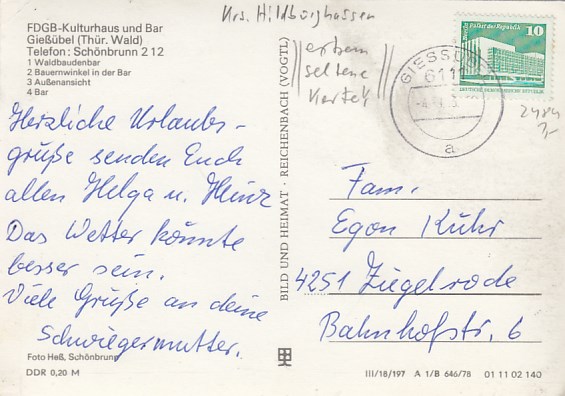 Krs. Hildburghausen
FDGB-Kulturhaus und Bar
Gießübel (Thür. Wald)
Telefon: Schönbrunn 2 12
1 Waldbaudenbar
2 Bauernwinkel in der Bar
3 Außenansicht
4 Bar
Herzliche Urlaubs-
grüße senden Euch
allen Helga u. Heinz
Das Wetter könnte
besser sein.
Viele Grüße an deine
Schwiegermutter.
Foto Heß, Schönbrunn
DDR 0,20 M
BILD UND HEIMAT · REICHENBACH (VOGTL)
extrem
seltene
Karte!
Palast der Republik
10
DEUTSCHE DEMOKRATISCHE REPUBLIK
GIESSÜBEL
6111
a
2484
Fam.
Egon Kühr
4251 Ziegelrode
Bahnhofstr. 6
III/18/197 A 1/B 646/78 01 11 02 140